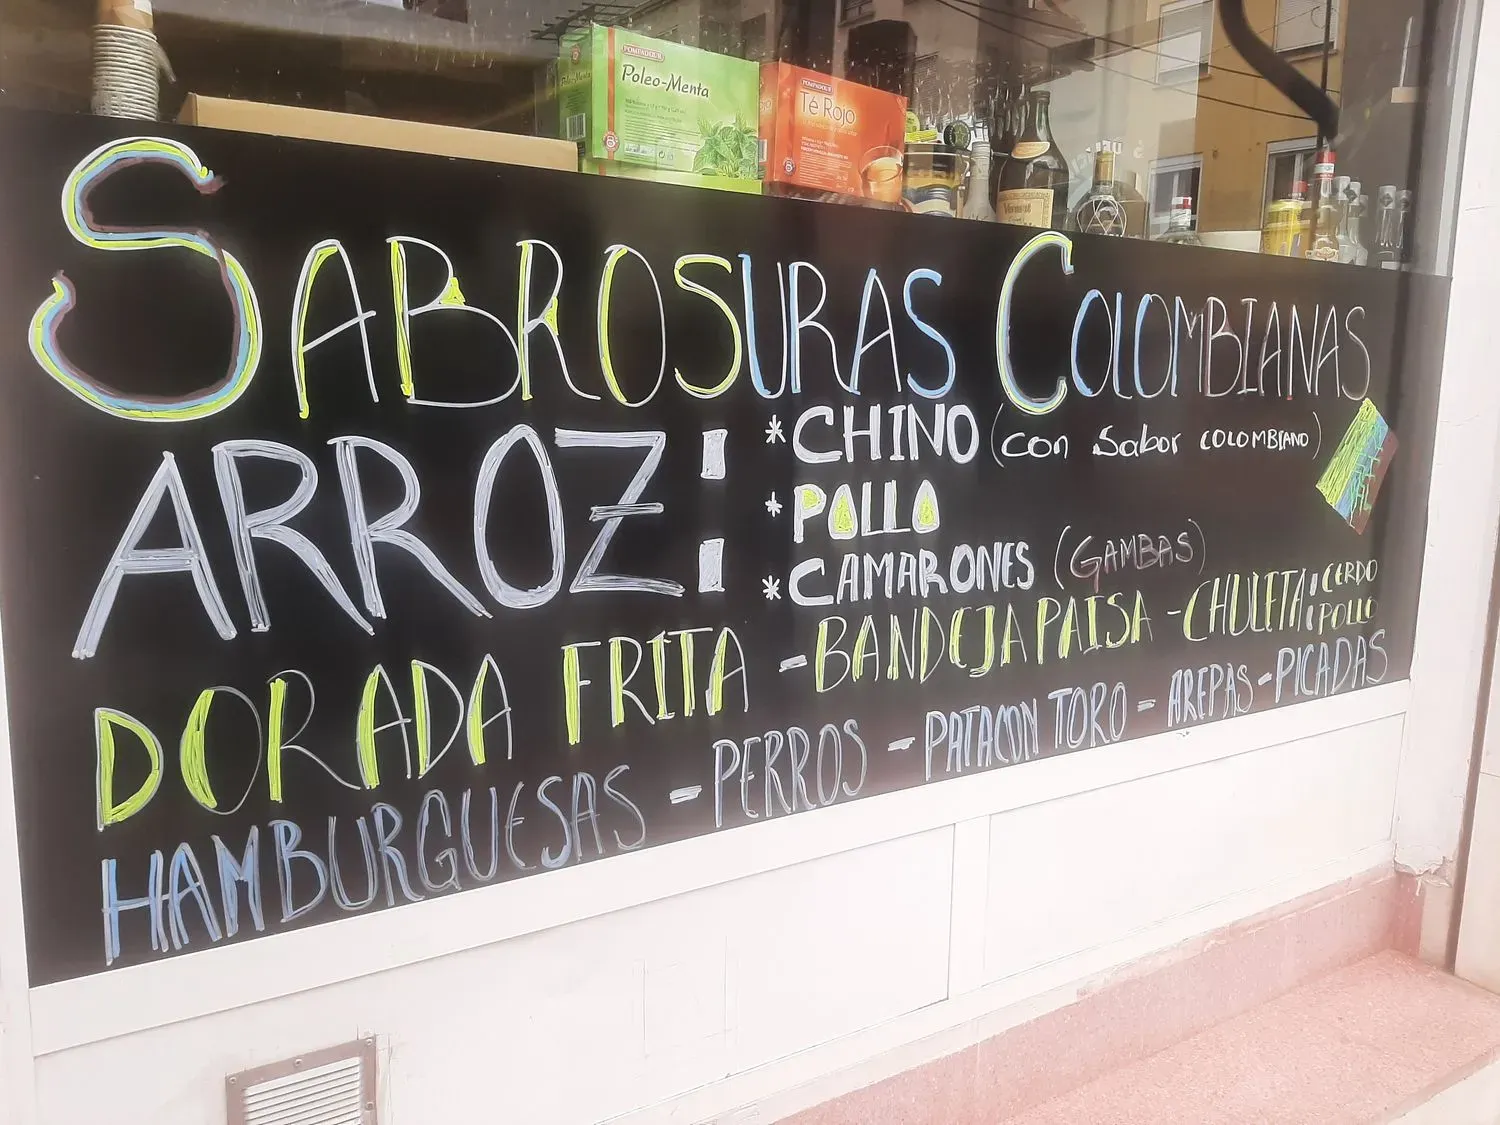 POMPADOUR
Poleo-Menta
POMPADOUR
Té Rojo
SABROSURAS COLOMBIANAS
ARROZ:
* CHINO (con sabor COLOMBIANO)
* POLLO
* CAMARONES (GAMBAS)
DORADA FRITA - BANDEJA PAISA - CHULETA: CERDO
POLLO
HAMBURGUESAS - PERROS - PATACON TORO - AREPAS - PICADAS